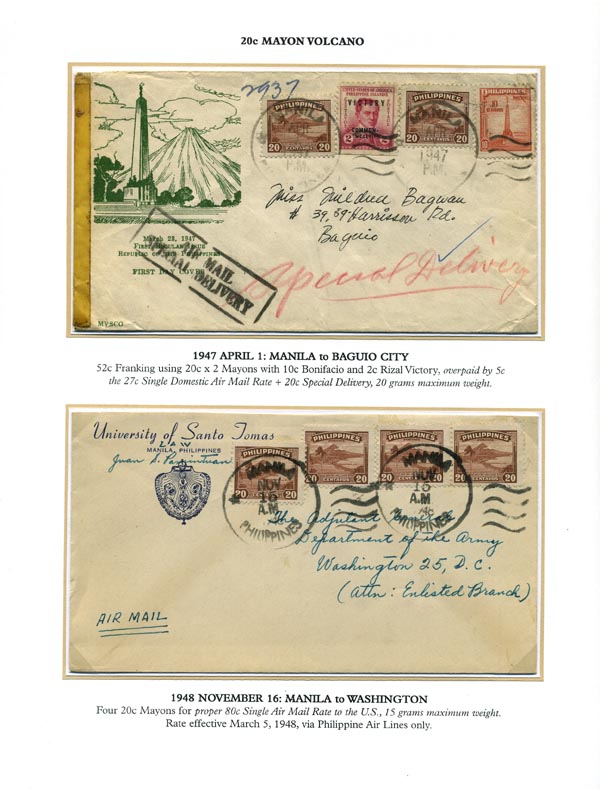 20c MAYON VOLCANO
2937
PHILIPPINES
20 CENTAVOS 20
UNITED STATES OF AMERICA
PHILIPPINE ISLANDS
VICTORY
COMMON-
2
PHILIPPINES
20 CENTAVOS 20
PHILIPPINES
10
MANILA
P.M.
MANILA
1947
P.M.
Miss Mildred Bagwan
# 39, 59 Harrisson Rd.
Baguio
Special Delivery
March 28, 1947
First Regular Issue
Republic of the Philippines
FIRST DAY COVER
AIR MAIL
SPECIAL DELIVERY
MVSCO
1947 APRIL 1: MANILA to BAGUIO CITY
52c Franking using 20c x 2 Mayons with 10c Bonifacio and 2c Rizal Victory, overpaid by 5c
the 27c Single Domestic Air Mail Rate + 20c Special Delivery, 20 grams maximum weight.
University of Santo Tomas
LAW
MANILA, PHILIPPINES
Juan S.
PHILIPPINES
20 CENTAVOS 20
PHILIPPINES
20 CENTAVOS 20
PHILIPPINES
20 CENTAVOS 20
PHILIPPINES
20 CENTAVOS 20
MANILA
NOV
16
A.M.
PHILIPPINES
MANILA
NOV
16
A.M.
PHILIPPINES
The Adjutant General
Department of the Army
Washington 25, D.C.
(Attn: Enlisted Branch)
AIR MAIL
1948 NOVEMBER 16: MANILA to WASHINGTON
Four 20c Mayons for proper 80c Single Air Mail Rate to the U.S., 15 grams maximum weight.
Rate effective March 5, 1948, via Philippine Air Lines only.